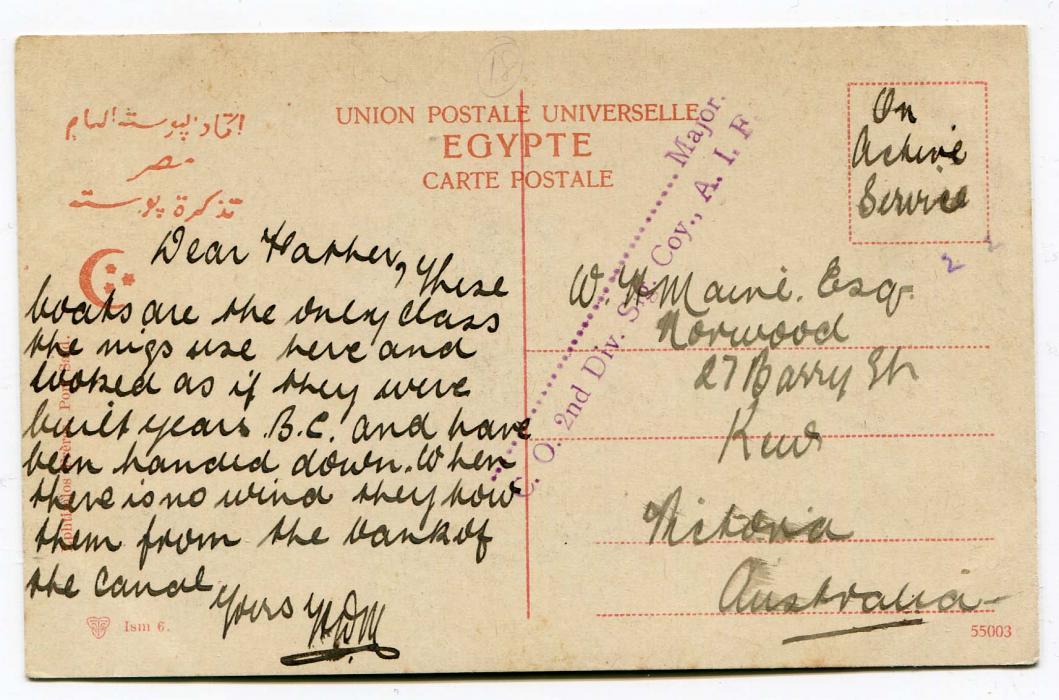 18
اتحاد پوسته العام
مصر
تذكرة پوسته
UNION POSTALE UNIVERSELLE
EGYPTE
CARTE POSTALE
On
Active
Service
Major.
C. O. 2nd Div. Sig. Coy., A. I. F.
Dear Father, These
boats are the only class
the nigs use here and
looked as if they were
built years B.C. and have
been handed down. When
there is no wind they tow
them from the bank of
the canal
Yours HWM
W. H. Maine. Esq.
Norwood
27 Barry St
Kew
Victoria
Australia
2 2
Ism 6.
55003